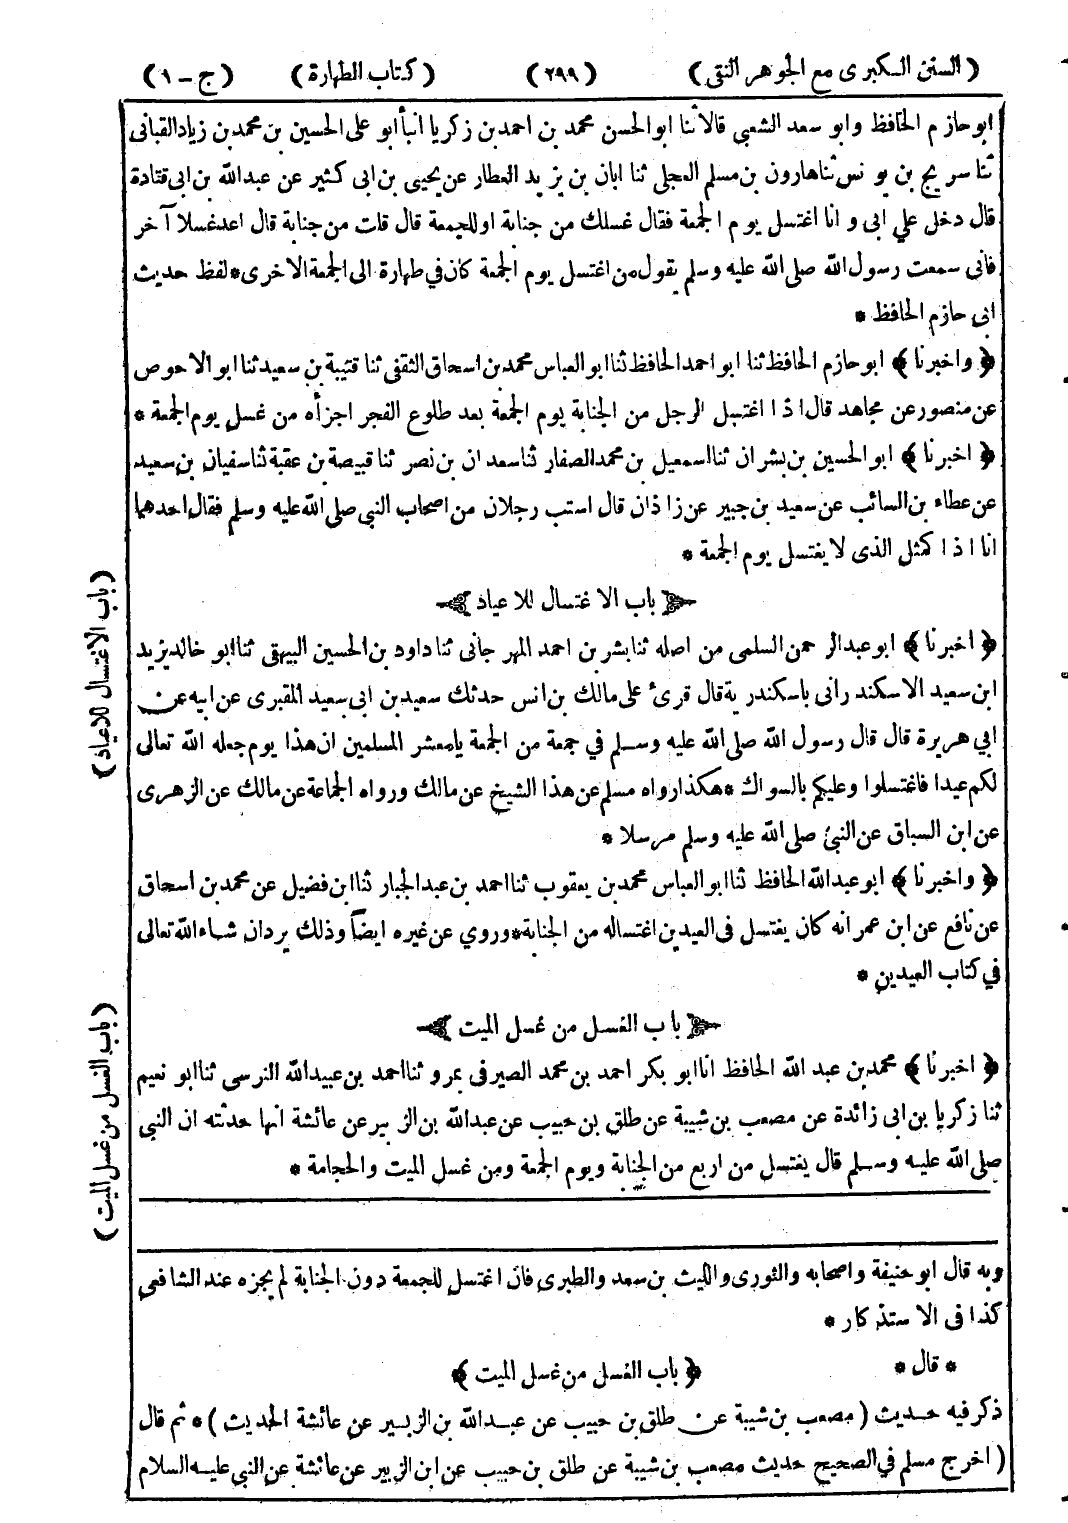 ( السنن الكبرى مع الجوهر النقى ) ( ٢٩٩ ) ( كتاب الطهارة ) ( ج – ١ )
ابو حازم الحافظ وابو سعد الشعبى قالا ثنا ابو الحسن محمد بن احمد بن زكريا انبأ ابو على الحسين بن محمد بن زياد القبانى
ثنا سريج بن يونس ثنا هارون بن مسلم العجلى ثنا ابان بن يزيد العطار عن يحيى بن ابى كثير عن عبد الله بن ابى قتادة
قال دخل علي ابى و انا اغتسل يوم الجمعة فقال غسلك من جنابة او للجمعة قال قلت من جنابة قال اعد غسلا آخر
فانى سمعت رسول الله صلى الله عليه وسلم يقول من اغتسل يوم الجمعة كان في طهارة الى الجمعة الاخرى * لفظ حديث
ابى حازم الحافظ *
﴿ واخبرنا ﴾ ابو حازم الحافظ ثنا ابو احمد الحافظ ثنا ابو العباس محمد بن اسحاق الثقفى ثنا قتيبة بن سعيد ثنا ابو الاحوص
عن منصور عن مجاهد قال اذا اغتسل الرجل من الجنابة يوم الجمعة بعد طلوع الفجر اجزأه من غسل يوم الجمعة *
﴿ اخبرنا ﴾ ابو الحسين بن بشران ثنا اسمعيل بن محمد الصفار ثنا سعدان بن نصر ثنا قبيصة بن عقبة ثنا سفيان بن سعيد
عن عطاء بن السائب عن سعيد بن جبير عن زاذان قال استب رجلان من اصحاب النبى صلى الله عليه وسلم فقال احدهما
انا اذا كمثل الذى لا يغتسل يوم الجمعة *
باب الاغتسال للاعياد
﴿ اخبرنا ﴾ ابو عبد الرحمن السلمى من اصله ثنا بشر بن احمد المهرجانى ثنا داود بن الحسين البيهقى ثنا ابو خالد يزيد
ابن سعيد الاسكندرانى باسكندرية قال قرئ على مالك بن انس حدثك سعيد بن ابى سعيد المقبرى عن ابيه عن
ابي هريرة قال قال رسول الله صلى الله عليه وسلم في جمعة من الجمعة يا معشر المسلمين ان هذا يوم جعله الله تعالى
لكم عيدا فاغتسلوا وعليكم بالسواك * هكذا رواه مسلم عن هذا الشيخ عن مالك ورواه الجماعة عن مالك عن الزهرى
عن ابن السباق عن النبى صلى الله عليه وسلم مرسلا *
﴿ واخبرنا ﴾ ابو عبد الله الحافظ ثنا ابو العباس محمد بن يعقوب ثنا احمد بن عبد الجبار ثنا ابن فضيل عن محمد بن اسحاق
عن نافع عن ابن عمر انه كان يغتسل فى العيدين اغتساله من الجنابة * وروي عن غيره ايضاً وذلك يرد ان شاء الله تعالى
في كتاب العيدين *
باب الغسل من غسل الميت
﴿ اخبرنا ﴾ محمد بن عبد الله الحافظ انا ابو بكر احمد بن محمد الصيرفى بمرو ثنا احمد بن عبيد الله النرسى ثنا ابو نعيم
ثنا زكريا بن ابى زائدة عن مصعب بن شيبة عن طلق بن حبيب عن عبد الله بن الزبير عن عائشة انها حدثته ان النبي
صلى الله عليه وسلم قال يغتسل من اربع من الجنابة ويوم الجمعة ومن غسل الميت والحجامة *
وبه قال ابو حنيفة واصحابه والثورى والليث بن سعد والطبرى فان اغتسل للجمعة دون الجنابة لم يجزه عند الشافعي
كذا فى الاستذكار *
* قال * ﴿ باب الغسل من غسل الميت ﴾
ذكر فيه حديث ( مصعب بن شيبة عن طلق بن حبيب عن عبد الله بن الزبير عن عائشة الحديث ) * ثم قال
( اخرج مسلم في الصحيح حديث مصعب بن شيبة عن طلق بن حبيب عن ابن الزبير عن عائشة عن النبي عليه السلام
( باب الاغتسال للاعياد )
( باب الغسل من غسل الميت )